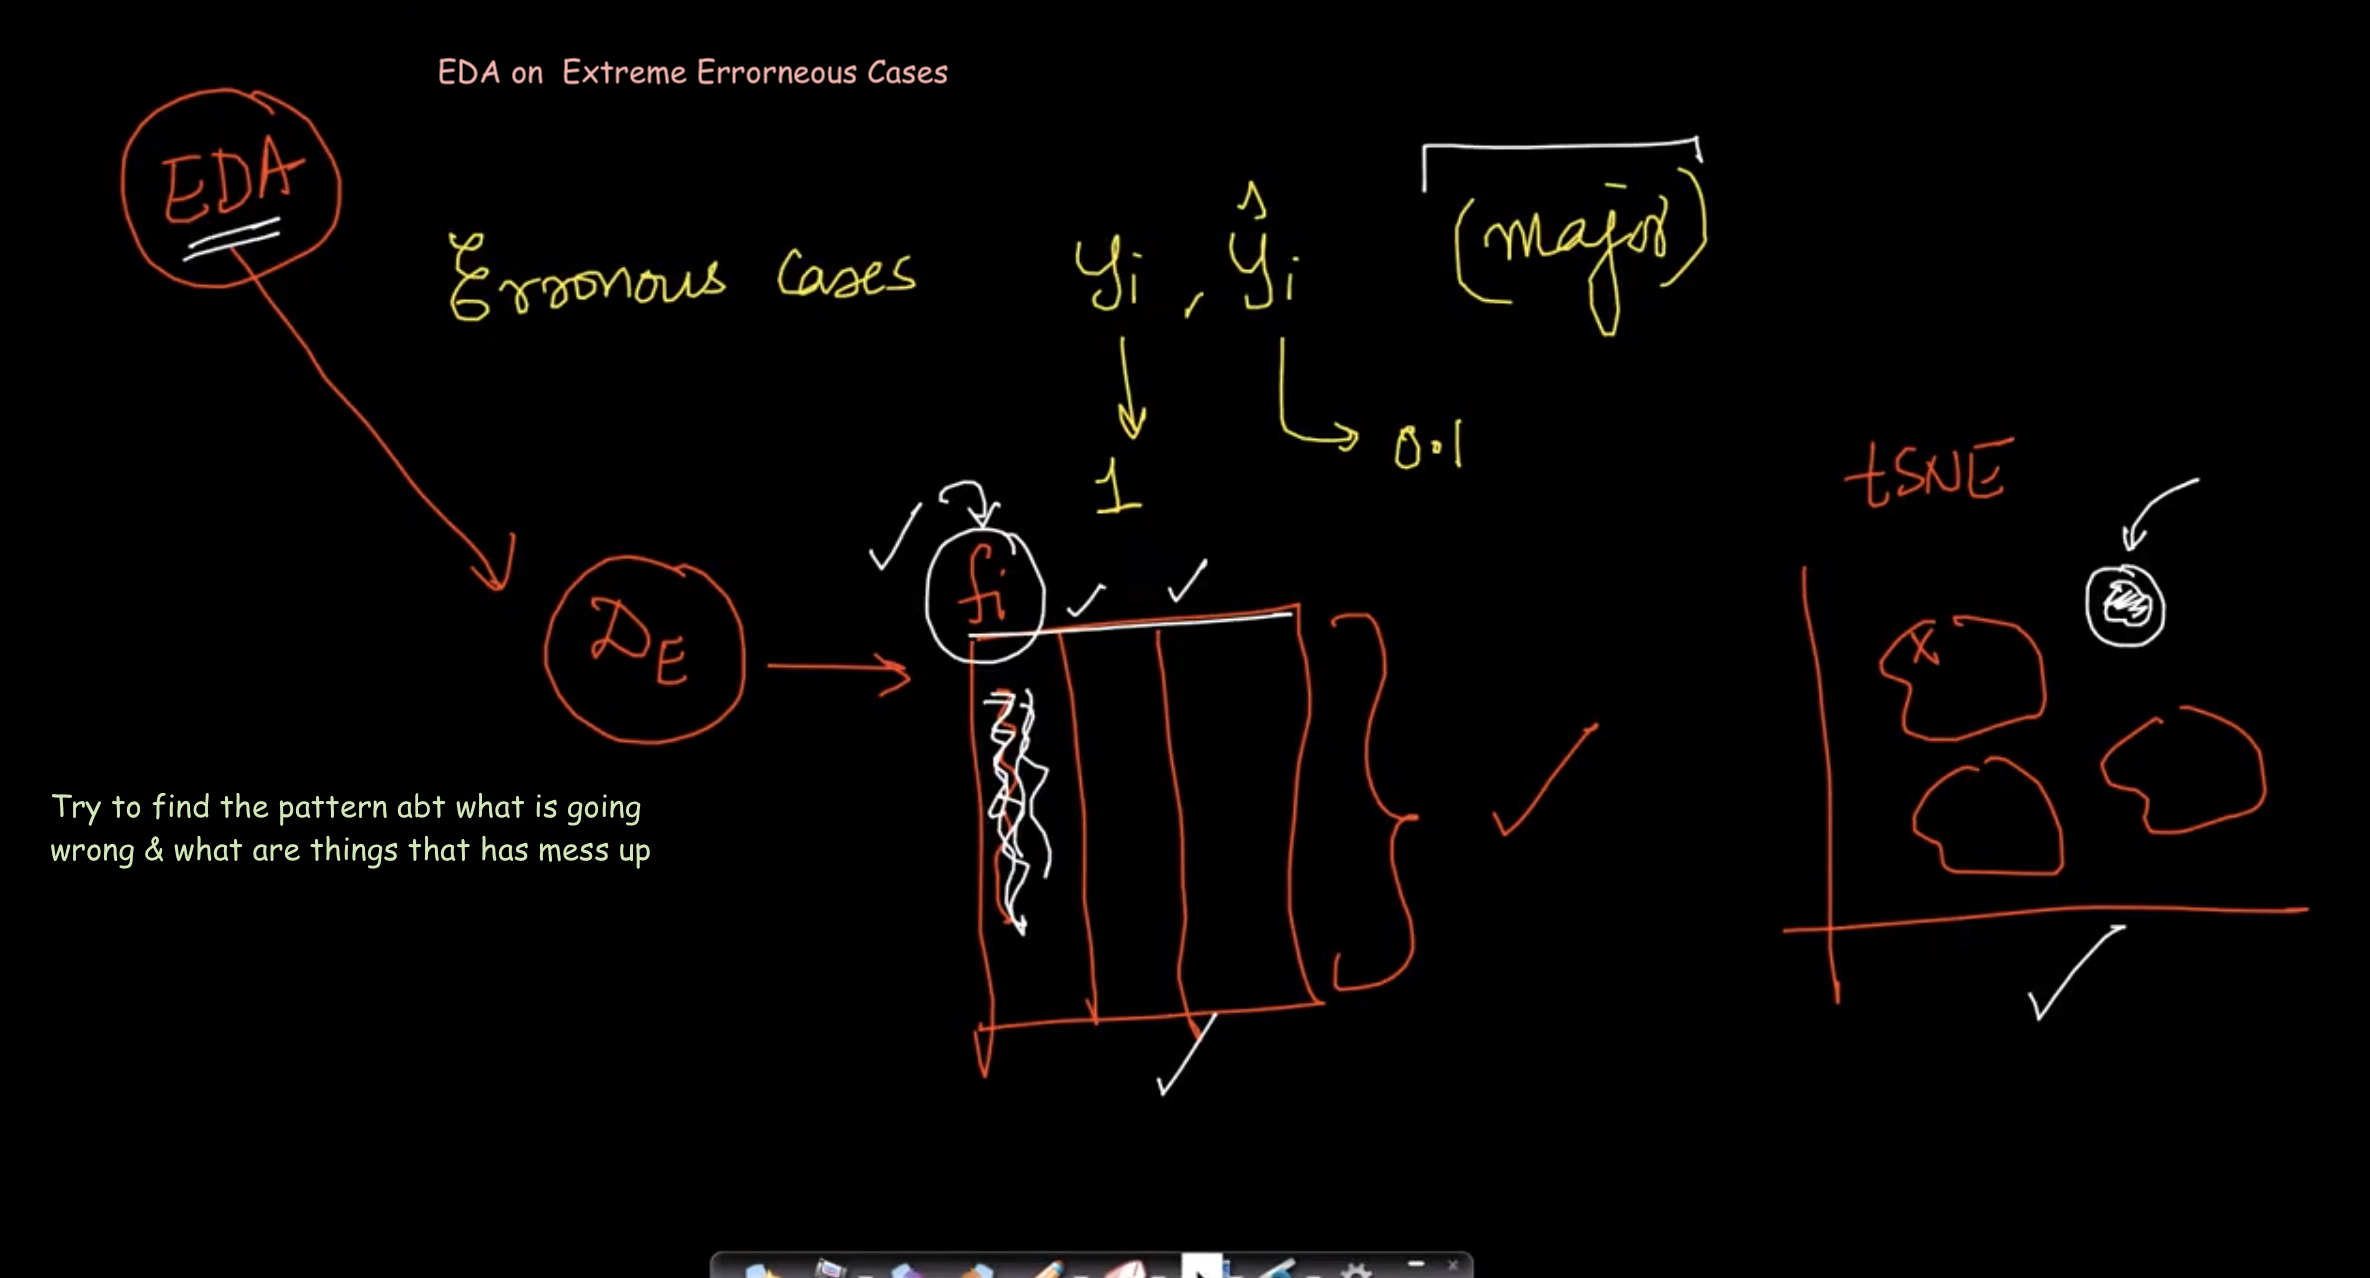 EDA on Extreme Errorneous Cases
EDA
Erronous Cases yi , ŷi (major)
1
0.1
tSNE
fi
x
DE
Try to find the pattern abt what is going
wrong & what are things that has mess up